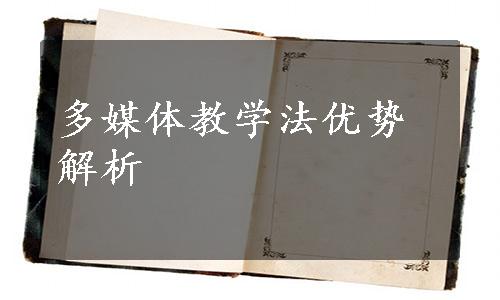 多媒体教学法优势
解析